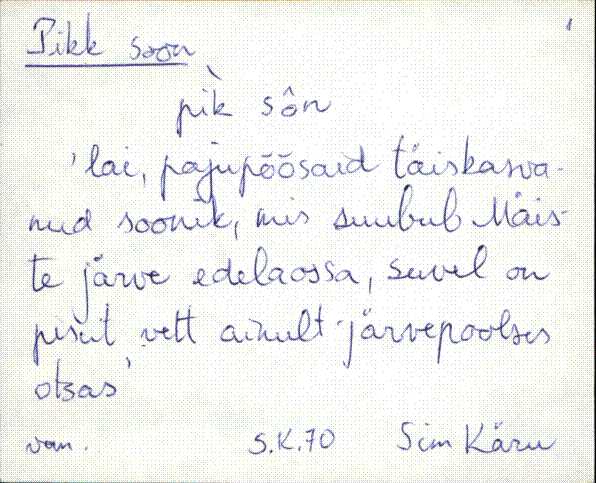 Pikk soon
pi̮k sôn
'lai, pajupõõsaid täiskasva-
nud soonik, mis suubub Mäis-
te järve edelaossa, suvel on
pisut vett ainult järvepoolses
otsas'
van. S.K.70 Sim Käru